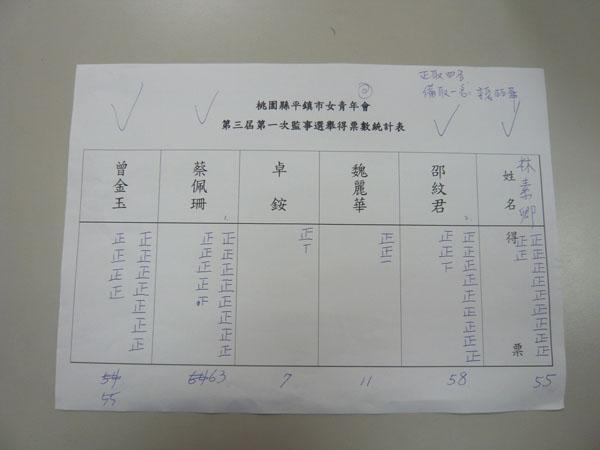 正取四名
備取一名: 魏麗華
桃園縣平鎮市女青年會
第三屆第一次監事選舉得票數統計表
姓名
林素卿
得票
正正正正正正正正正
正正
55
邵紋君
2.
正正正正正正正正正
正正下
58
魏麗華
正正一
11
卓銨
正丅
7
蔡佩珊
1.
正正正正正正正正
正正正正下
64 63
曾金玉
正正正正正正正
正正正正
54
55